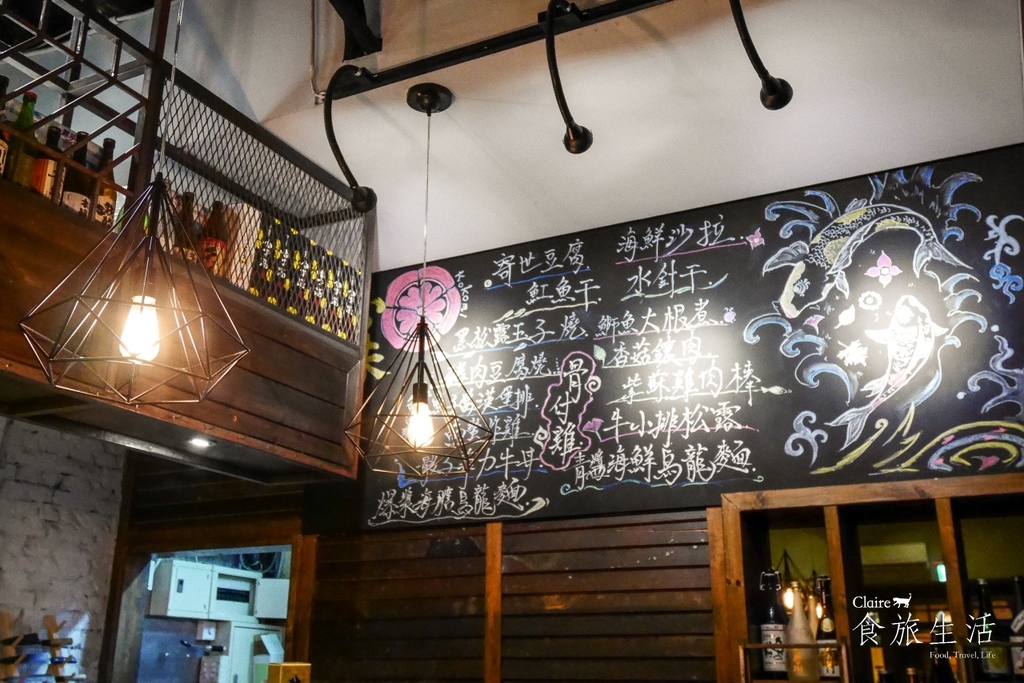 寄世豆腐
海鮮沙拉
魟魚干
水針干
黑松露玉子燒
鰤魚大根煮
肉豆腐燒
香菇鑲肉
骨付雞
柴蘇雞肉棒
牛小排松露
力牛丼
青醬海鮮烏龍麵
爆漿海膽烏龍麵
Claire
食旅生活
Food, Travel, Life